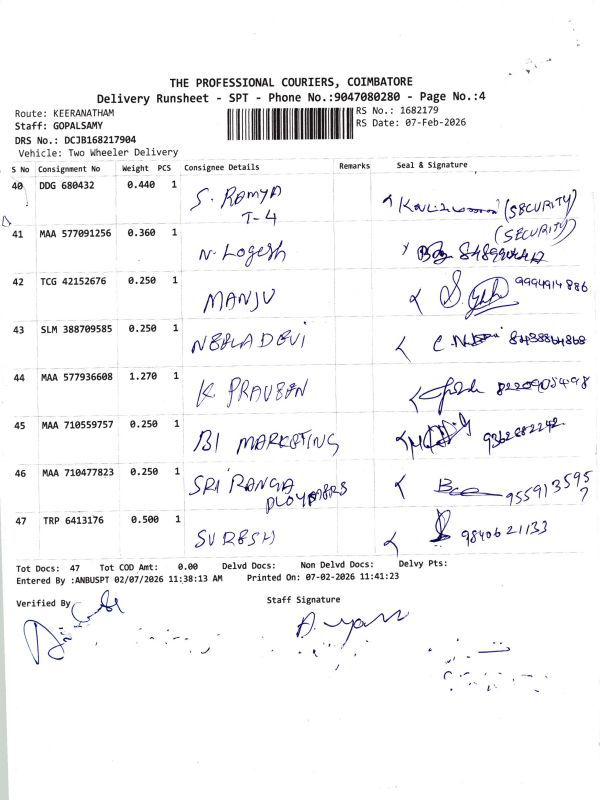 THE PROFESSIONAL COURIERS, COIMBATORE
Delivery Runsheet - SPT - Phone No.:9047080280 - Page No.:4
Route: KEERANATHAM RS No.: 1682179
Staff: GOPALSAMY RS Date: 07-Feb-2026
DRS No.: DCJB168217904
Vehicle: Two Wheeler Delivery
S No Consignment No Weight PCS Consignee Details Remarks Seal & Signature
40 DDG 680432 0.440 1 S. RAMYA (SECURITY)
T-4
41 MAA 577091256 0.360 1 N. Logesh (SECURITY)
42 TCG 42152676 0.250 1 MANJU 9994914886
43 SLM 388709585 0.250 1 NEELADEVI
44 MAA 577936608 1.270 1 K PRAVEEN
45 MAA 710559757 0.250 1 BI MARKETING
46 MAA 710477823 0.250 1 SRI RANGA 955913595
7
47 TRP 6413176 0.500 1 SURESH 9840621133
Tot Docs: 47 Tot COD Amt: 0.00 Delvd Docs: Non Delvd Docs: Delvy Pts:
Entered By :ANBUSPT 02/07/2026 11:38:13 AM Printed On: 07-02-2026 11:41:23
Verified By Staff Signature